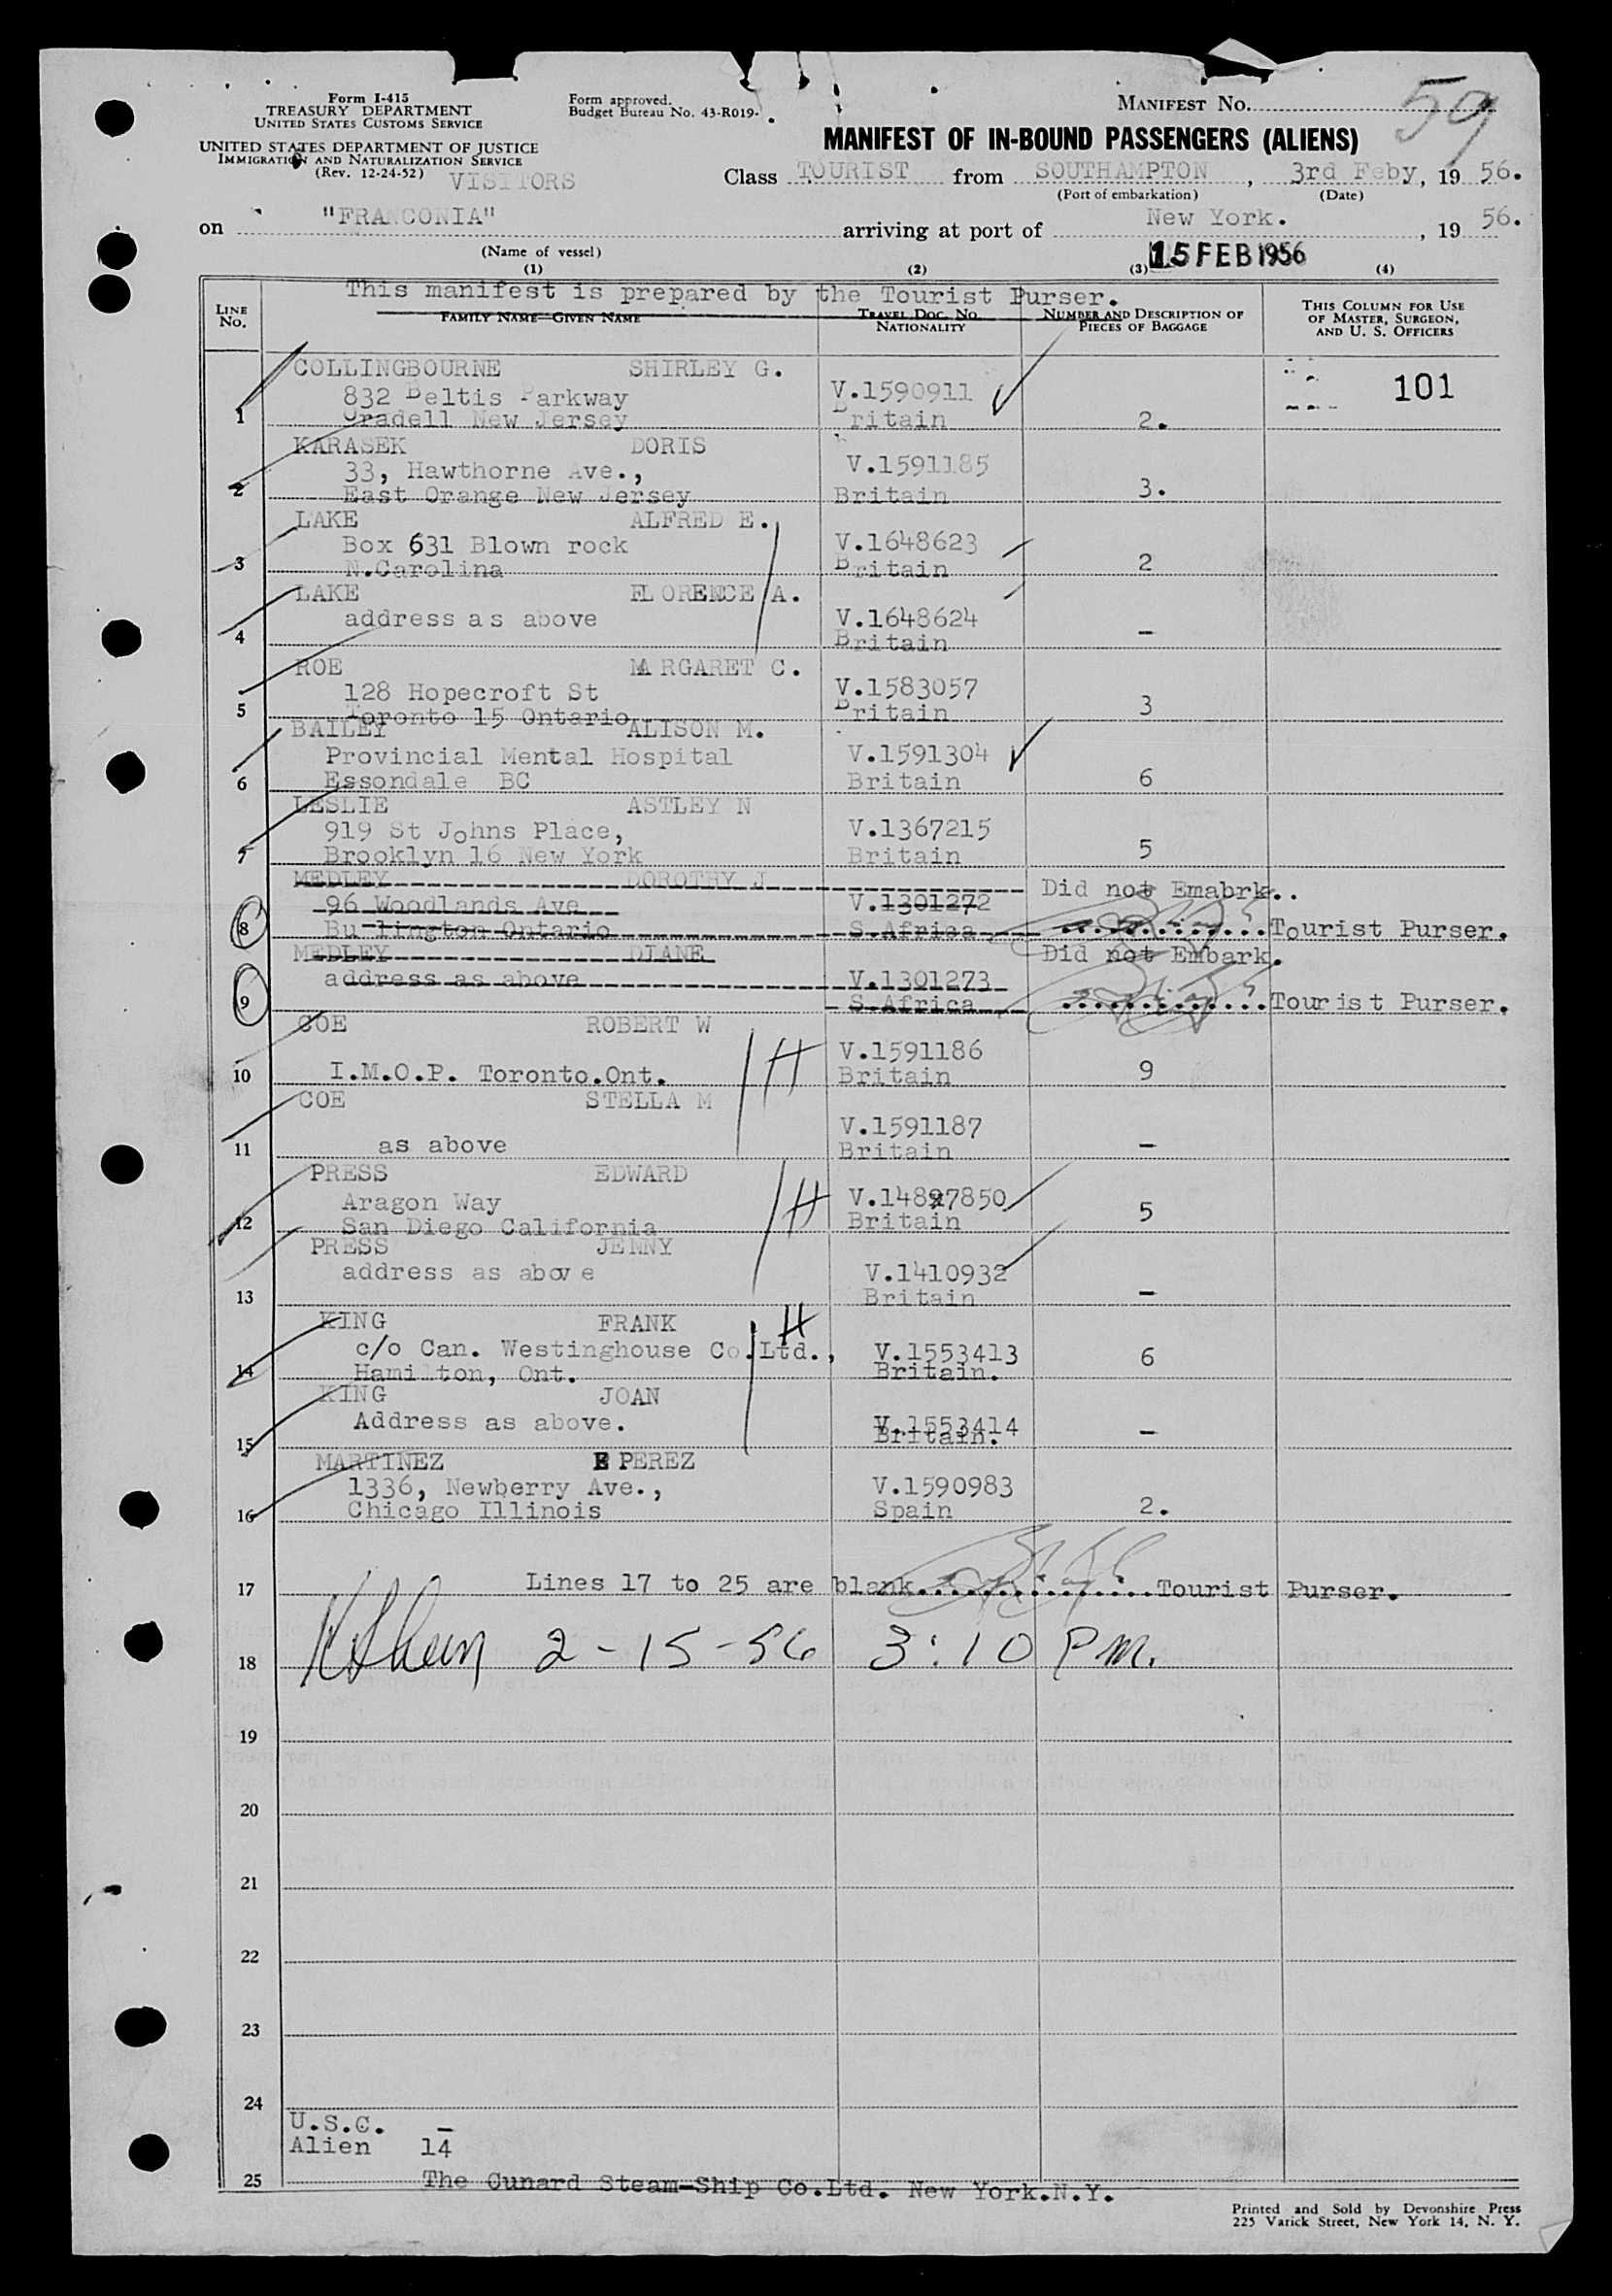 Form I-415
TREASURY DEPARTMENT
UNITED STATES CUSTOMS SERVICE
UNITED STATES DEPARTMENT OF JUSTICE
IMMIGRATION AND NATURALIZATION SERVICE
(Rev. 12-24-52)
VISITORS
Form approved.
Budget Bureau No. 43-R019-
MANIFEST No. 59
MANIFEST OF IN-BOUND PASSENGERS (ALIENS)
Class TOURIST from SOUTHAMPTON, 3rd Feby, 19 56.
(Port of embarkation) (Date)
on "FRANCONIA" arriving at port of New York. , 19 56.
(Name of vessel)
15 FEB 1956
(1) (2) (3) (4)
This manifest is prepared by the Tourist Purser.
LINE No. FAMILY NAME—GIVEN NAME TRAVEL DOC. No. NATIONALITY NUMBER AND DESCRIPTION OF PIECES OF BAGGAGE THIS COLUMN FOR USE OF MASTER, SURGEON, AND U. S. OFFICERS
COLLINGBOURNE SHIRLEY G.
832 Beltis Parkway V.1590911 101
1 Oradell New Jersey Britain 2.
KARASEK DORIS
33, Hawthorne Ave., V.1591185
2 East Orange New Jersey Britain 3.
LAKE ALFRED E.
Box 631 Blown rock V.1648623
3 N.Carolina Britain 2
LAKE FLORENCE A.
address as above V.1648624
4 Britain -
ROE MARGARET C.
128 Hopecroft St V.1583057
5 Toronto 15 Ontario Britain 3
BAILEY ALISON M.
Provincial Mental Hospital V.1591304
6 Essondale BC Britain 6
LESLIE ASTLEY N
919 St Johns Place, V.1367215
7 Brooklyn 16 New York Britain 5
MEDLEY DOROTHY J Did not Emabrk..
96 Woodlands Ave V.1301272
8 Bu lington Ontario S.Africa Tourist Purser.
MEDLEY DIANE Did not Embark.
address as above V.1301273
9 S.Africa Tourist Purser.
COE ROBERT W
H V.1591186
10 I.M.O.P. Toronto.Ont. Britain 9
COE STELLA M
V.1591187
11 as above Britain -
PRESS EDWARD
Aragon Way H V.1487850
12 San Diego California Britain 5
PRESS JENNY
address as above V.1410932
13 Britain -
KING FRANK H
c/o Can. Westinghouse Co.Ltd., V.1553413
14 Hamilton, Ont. Britain. 6
KING JOAN
Address as above. V.1553414
15 Britain. -
MARTINEZ E PEREZ
1336, Newberry Ave., V.1590983
16 Chicago Illinois Spain 2.
17 Lines 17 to 25 are blank Tourist Purser.
18 2-15-56 3:10 PM.
19
20
21
22
23
24
U.S.C. -
Alien 14
25 The Cunard Steam-Ship Co.Ltd. New York.N.Y.
Printed and Sold by Devonshire Press
225 Varick Street, New York 14, N. Y.